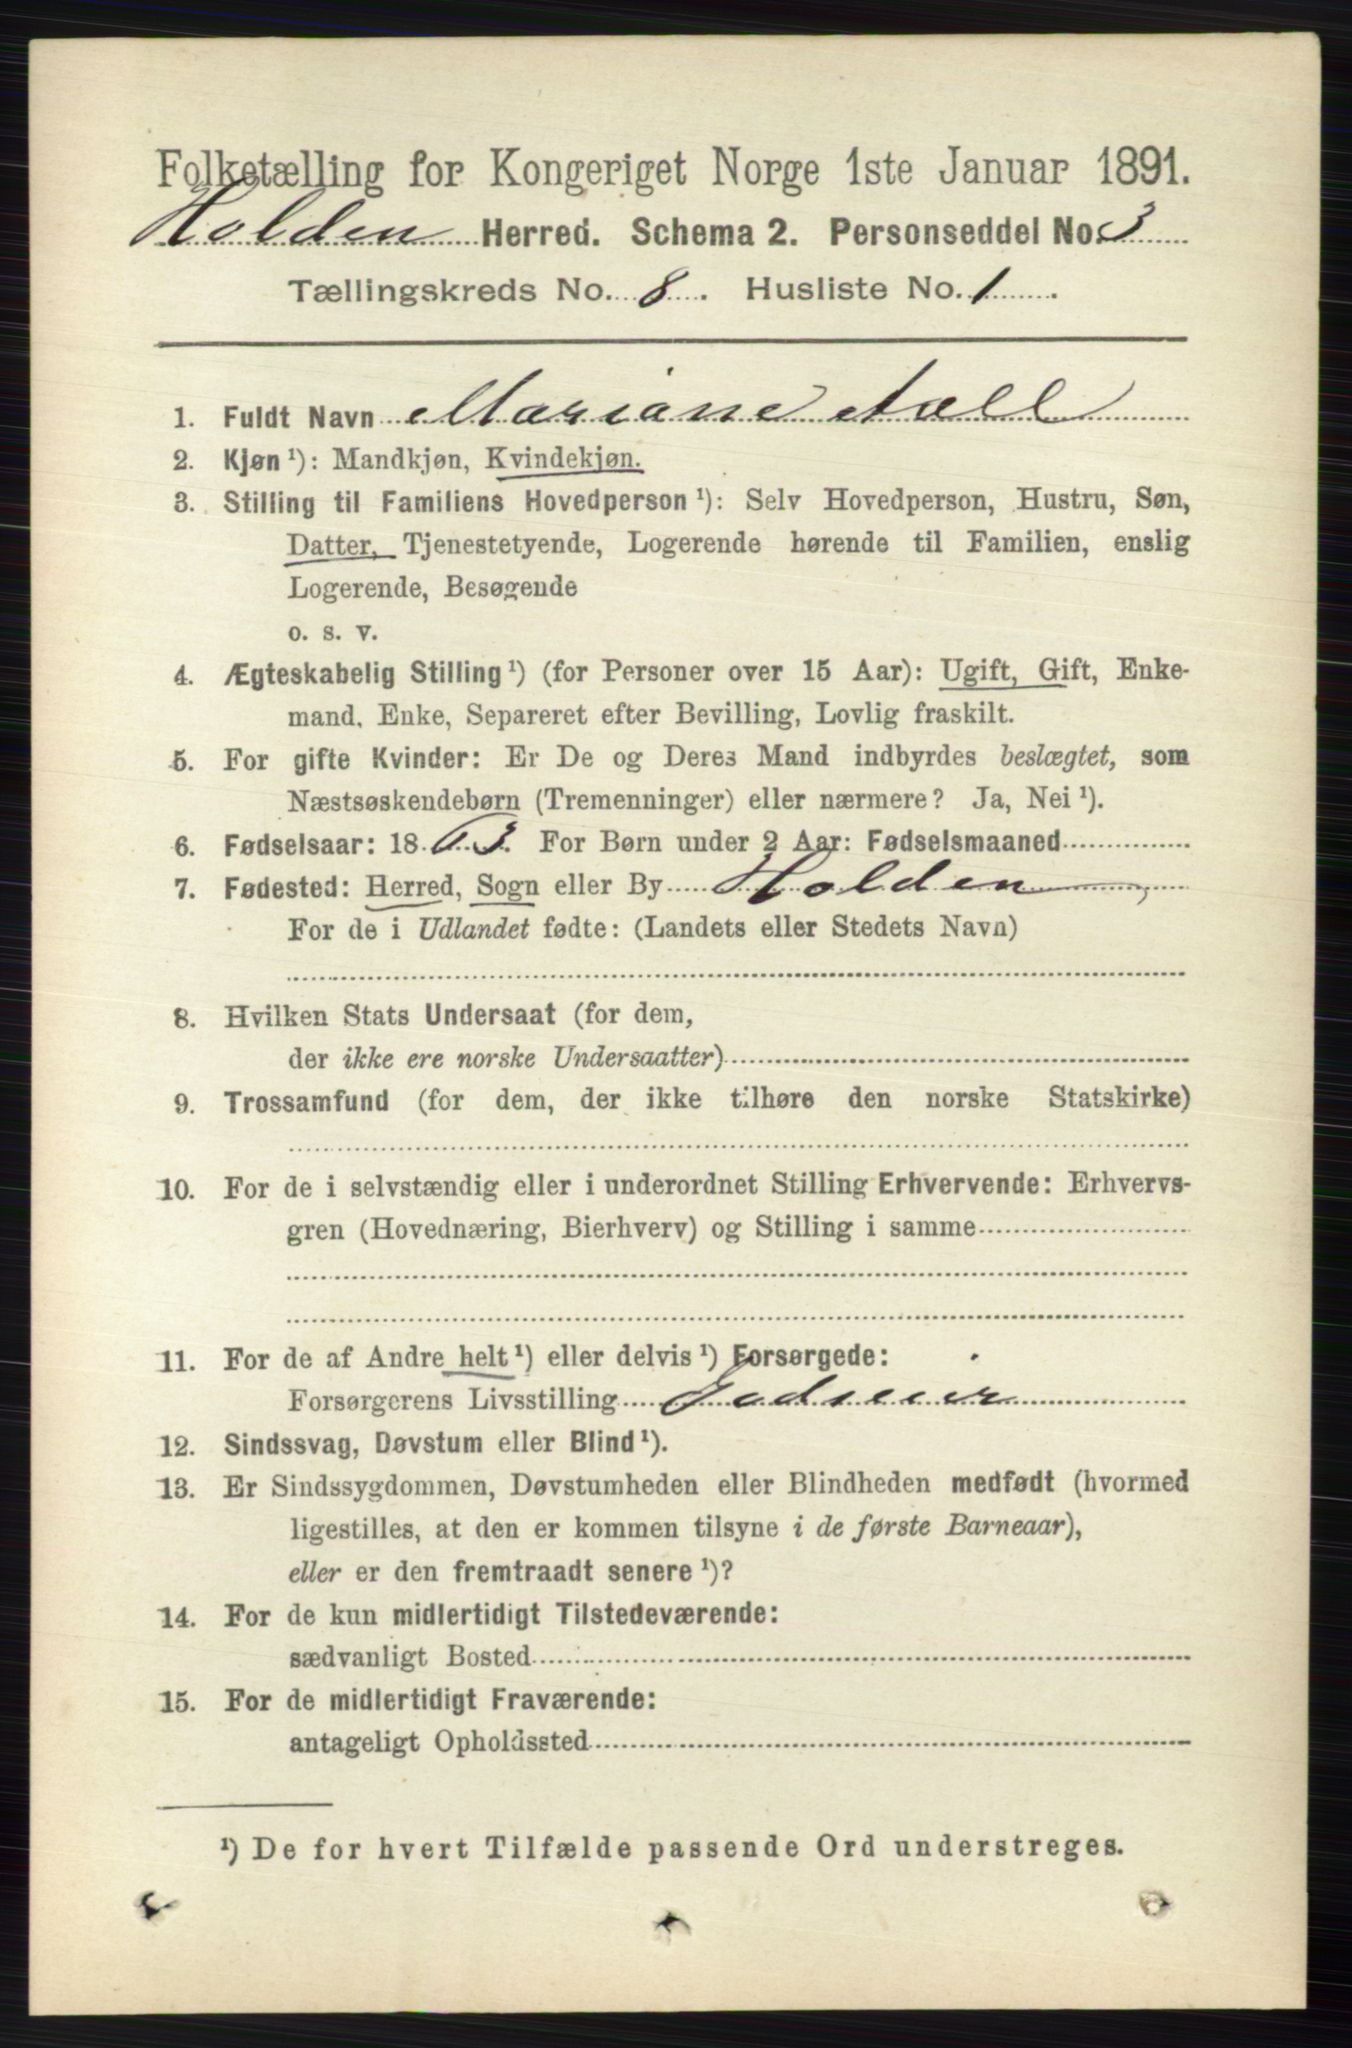 Folketælling for Kongeriget Norge 1ste Januar 1891.
Holden Herred. Schema 2. Personseddel No. 3
Tællingskreds No. 8. Husliste No. 1.
1. Fuldt Navn Mariane Aall
2. Kjøn ¹): Mandkjøn, Kvindekjøn.
3. Stilling til Familiens Hovedperson ¹): Selv Hovedperson, Hustru, Søn,
Datter, Tjenestetyende, Logerende hørende til Familien, enslig
Logerende, Besøgende
o. s. v.
4. Ægteskabelig Stilling ¹) (for Personer over 15 Aar): Ugift, Gift, Enke-
mand, Enke, Separeret efter Bevilling, Lovlig fraskilt.
5. For gifte Kvinder: Er De og Deres Mand indbyrdes beslægtet, som
Næstsøskendebørn (Tremenninger) eller nærmere? Ja, Nei ¹).
6. Fødselsaar: 1863. For Børn under 2 Aar: Fødselsmaaned
7. Fødested: Herred, Sogn eller By Holden
For de i Udlandet fødte: (Landets eller Stedets Navn)
8. Hvilken Stats Undersaat (for dem,
der ikke ere norske Undersaatter)
9. Trossamfund (for dem, der ikke tilhøre den norske Statskirke)
10. For de i selvstændig eller i underordnet Stilling Erhvervende: Erhvervs-
gren (Hovednæring, Bierhverv) og Stilling i samme
11. For de af Andre helt ¹) eller delvis ¹) Forsørgede:
Forsørgerens Livsstilling Godseier
12. Sindssvag, Døvstum eller Blind ¹).
13. Er Sindssygdommen, Døvstumheden eller Blindheden medfødt (hvormed
ligestilles, at den er kommen tilsyne i de første Barneaar),
eller er den fremtraadt senere ¹)?
14. For de kun midlertidigt Tilstedeværende:
sædvanligt Bosted
15. For de midlertidigt Fraværende:
antageligt Opholdssted
¹) De for hvert Tilfælde passende Ord understreges.